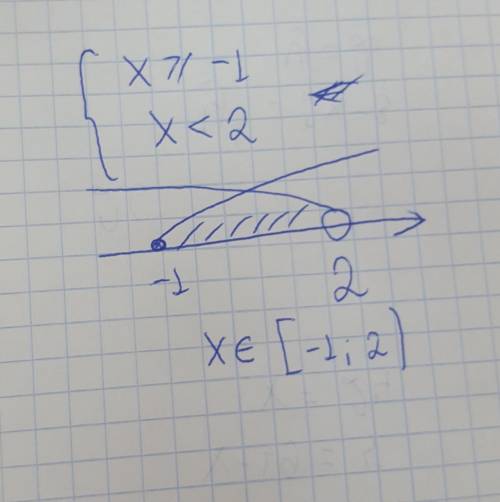 x ⩾ -1
x < 2
-1 2
x ∈ [-1; 2)